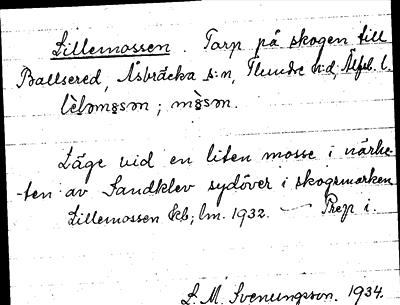 Lillemossen. Torp på skogen till
Ballsered, Åsbräcka s:n, Flundre h:d, Älfsb. l.
lèləmɔsən; mɔ̀sən.
Läge vid en liten mosse i närhe-
-ten av Sandklev sydöver i skogsmarken
Lillemossen Ekb; lm. 1932. — Prep i.
S. M. Svenungson. 1934.